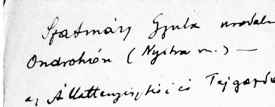 Szatmáry Gyula uradalm
Ondrohón (Nyitra m.) —
az Állattenyésztési és Tejgazda